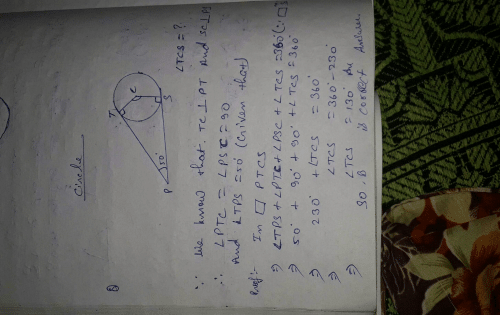 Circle
Q
T
C
S
P
50°
∠TCS = ?
∵ We know that TC ⊥ PT And SC ⊥ PS
∴ ∠PTC = ∠PSC = 90
And ∠TPS = 50° (Given that)
Proof:- In □ PTCS
⇒ ∠TPS + ∠PTC + ∠PSC + ∠TCS = 360° (∵ □)
⇒ 50° + 90° + 90° + ∠TCS = 360°
⇒ 230° + ∠TCS = 360°
⇒ ∠TCS = 360° - 230°
⇒ ∠TCS = 130° Ans
SO, B is correct Answer.